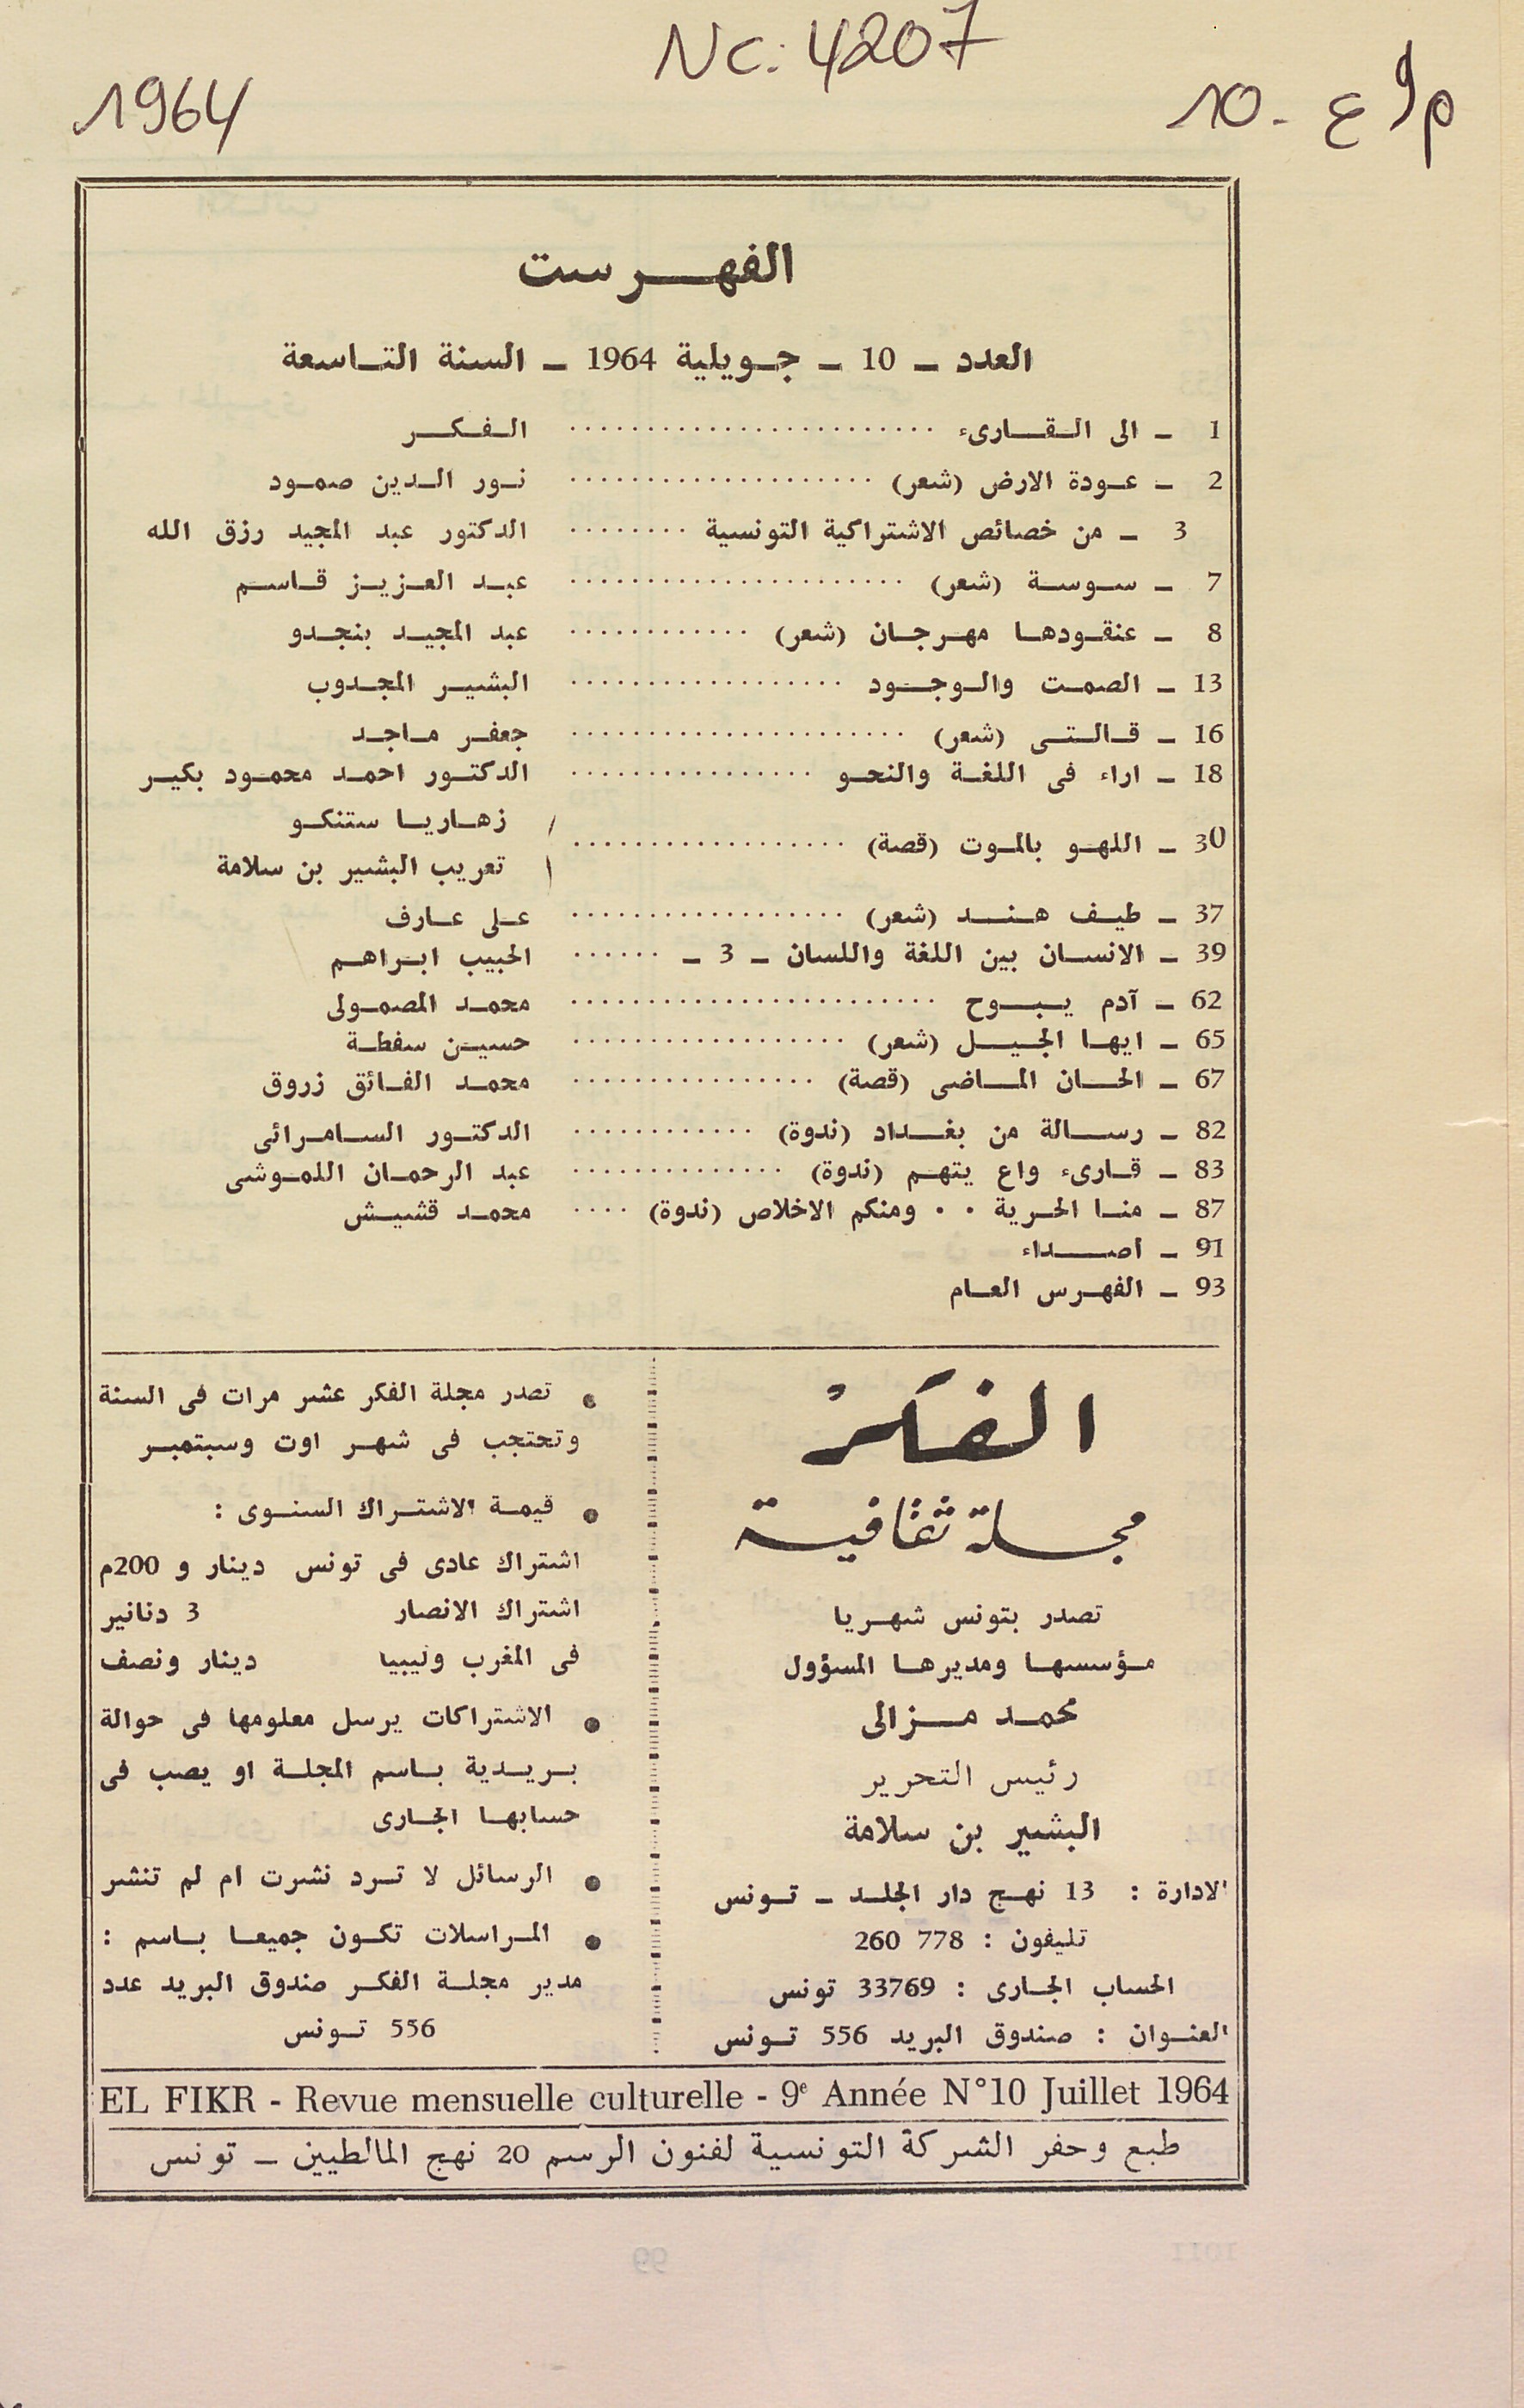 Nc: 4207
1964
م9 ع -10
الفهرست
العدد ــ 10 ــ جويلية 1964 ــ السنة التاسعة
1 ــ الى القارىء ........................ الفكر
2 ــ عودة الارض (شعر) .................... نور الدين صمود
3 ــ من خصائص الاشتراكية التونسية ........ الدكتور عبد المجيد رزق الله
7 ــ سوسة (شعر) ...................... عبد العزيز قاسم
8 ــ عنقودها مهرجان (شعر) ............ عبد المجيد بنجدو
13 ــ الصمت والوجود .................. البشير المجدوب
16 ــ قالتى (شعر) ...................... جعفر ماجد
18 ــ اراء فى اللغة والنحو ................ الدكتور احمد محمود بكير
زهاريا ستنكو
30 ــ اللهو بالموت (قصة) ..................
تعريب البشير بن سلامة
37 ــ طيف هند (شعر) .................. على عارف
39 ــ الانسان بين اللغة واللسان ــ 3 ــ ...... الحبيب ابراهم
62 ــ آدم يبوح ........................ محمد المصمولى
65 ــ ايها الجيل (شعر) .................. حسين سفطة
67 ــ الحان الماضى (قصة) ................ محمد الفائق زروق
82 ــ رسالة من بغداد (ندوة) ............ الدكتور السامرائى
83 ــ قارىء واع يتهم (ندوة) .............. عبد الرحمان اللموشى
87 ــ منا الحرية . . ومنكم الاخلاص (ندوة) .... محمد قشيش
91 ــ اصداء
93 ــ الفهرس العام
الفكر
مجلة ثقافية
تصدر بتونس شهريا
مؤسسها ومديرها المسؤول
محمد مزالى
رئيس التحرير
البشير بن سلامة
الادارة : 13 نهج دار الجلد ــ تونس
تليفون : 778 260
الحساب الجارى : 33769 تونس
العنوان : صندوق البريد 556 تونس
● تصدر مجلة الفكر عشر مرات فى السنة
وتحتجب فى شهر اوت وسبتمبر
● قيمة الاشتراك السنوى :
اشتراك عادى فى تونس دينار و 200م
اشتراك الانصار 3 دنانير
فى المغرب وليبيا دينار ونصف
● الاشتراكات يرسل معلومها فى حوالة
بريدية باسم المجلة او يصب فى
حسابها الجارى
● الرسائل لا ترد نشرت ام لم تنشر
● المراسلات تكون جميعا باسم :
مدير مجلة الفكر صندوق البريد عدد
556 تونس
EL FIKR - Revue mensuelle culturelle - 9e Année N°10 Juillet 1964
طبع وحفر الشركة التونسية لفنون الرسم 20 نهج المالطيين ــ تونس